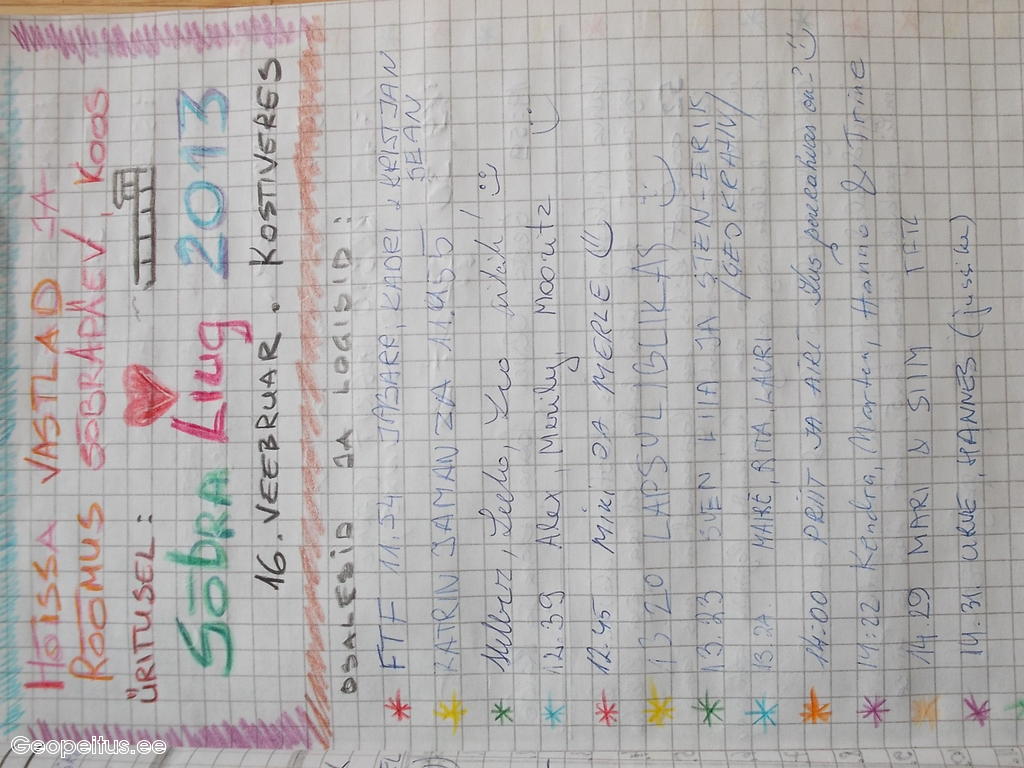 HÕISSA VASTLAD JA
RÕÕMUS SÕBRAPÄEV KOOS
ÜRITUSEL:
SÕBRA Liug 2013
16. VEEBRUAR. KOSTIVERES
OSALESID JA LOGISID:
FTF 11.54 JABARR, KADRI & KRISTJAN
JEAN
KATRIN JAMANZA 11.55
, Leelo,
12.39 Alex, Marily, Moontz :)
12.45 MIKI JA MERLE :)
13 20 LAPSULIBLIKAS :)
13.23 SVEN, LIIA JA STEN-ERIK
/GEOKRAHV/
13.24 MARE, RITA, LAURI
14:00 PRIIT JA AIRI :)
14:22 Kendra, Marten, Hanno & Triine
14.29 MARI & SIIM TFTC
14.31. URVE, HANNES (jussike)
Geopeitus.ee